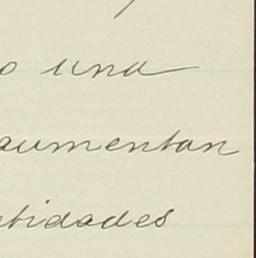 o una
aumentan
tidades